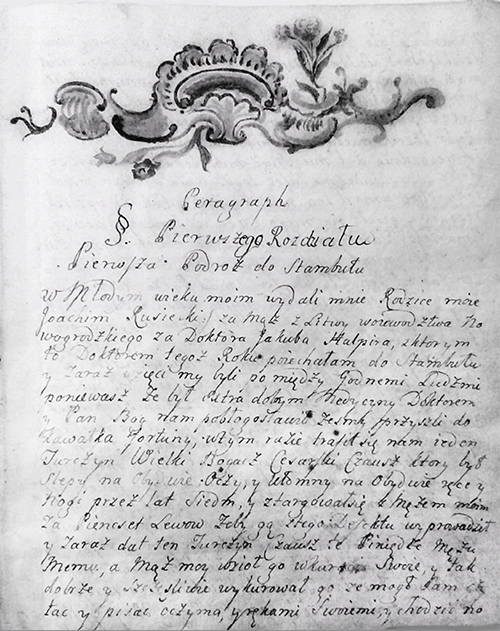 Peragraph
§. Pierwszego Rozdziału
Pierwsza Podroż do Stambułu
w Młodym wieku moim wydali mnie Rodzice moie
Joachim Rusiecki za Mąż z Litwy woiewodztwa No
wogrodzkiego za Doktora Jakuba Halpira, z ktorym
to Doktorem tegoż Roku poiechałam do Stambułu
y Zaraz wzięci my byli po między Godnemi Ludzmi
poniewasz że był dobrym Medyczny Doktorem
y Pan Bog nam pobłogosławił żesmy przyszli do
kawałka Fortuny, w tym razie trafił się nam ieden
Turczyn Wielki Bogacz Cesarski Czausz ktory był
slepy na Obydwie Oczy, y ułomny na Obydwie ręce y
Nogi przez lat Siedm, y ztargował się z Mężem moim
Za Piencset Lewow żeby go z tego Defektu wyprowadził
y Zaraz dał ten Turczyn Czausz te Pieniądze Mężu
Memu, a Mąż moy wzioł go w kuracyą Swoię, y tak
dobrze y Szczęsliwie wykurował go ze mogł Sam czy
tac y pisac oczyma, y rękami Swoiemi, y chodzic no